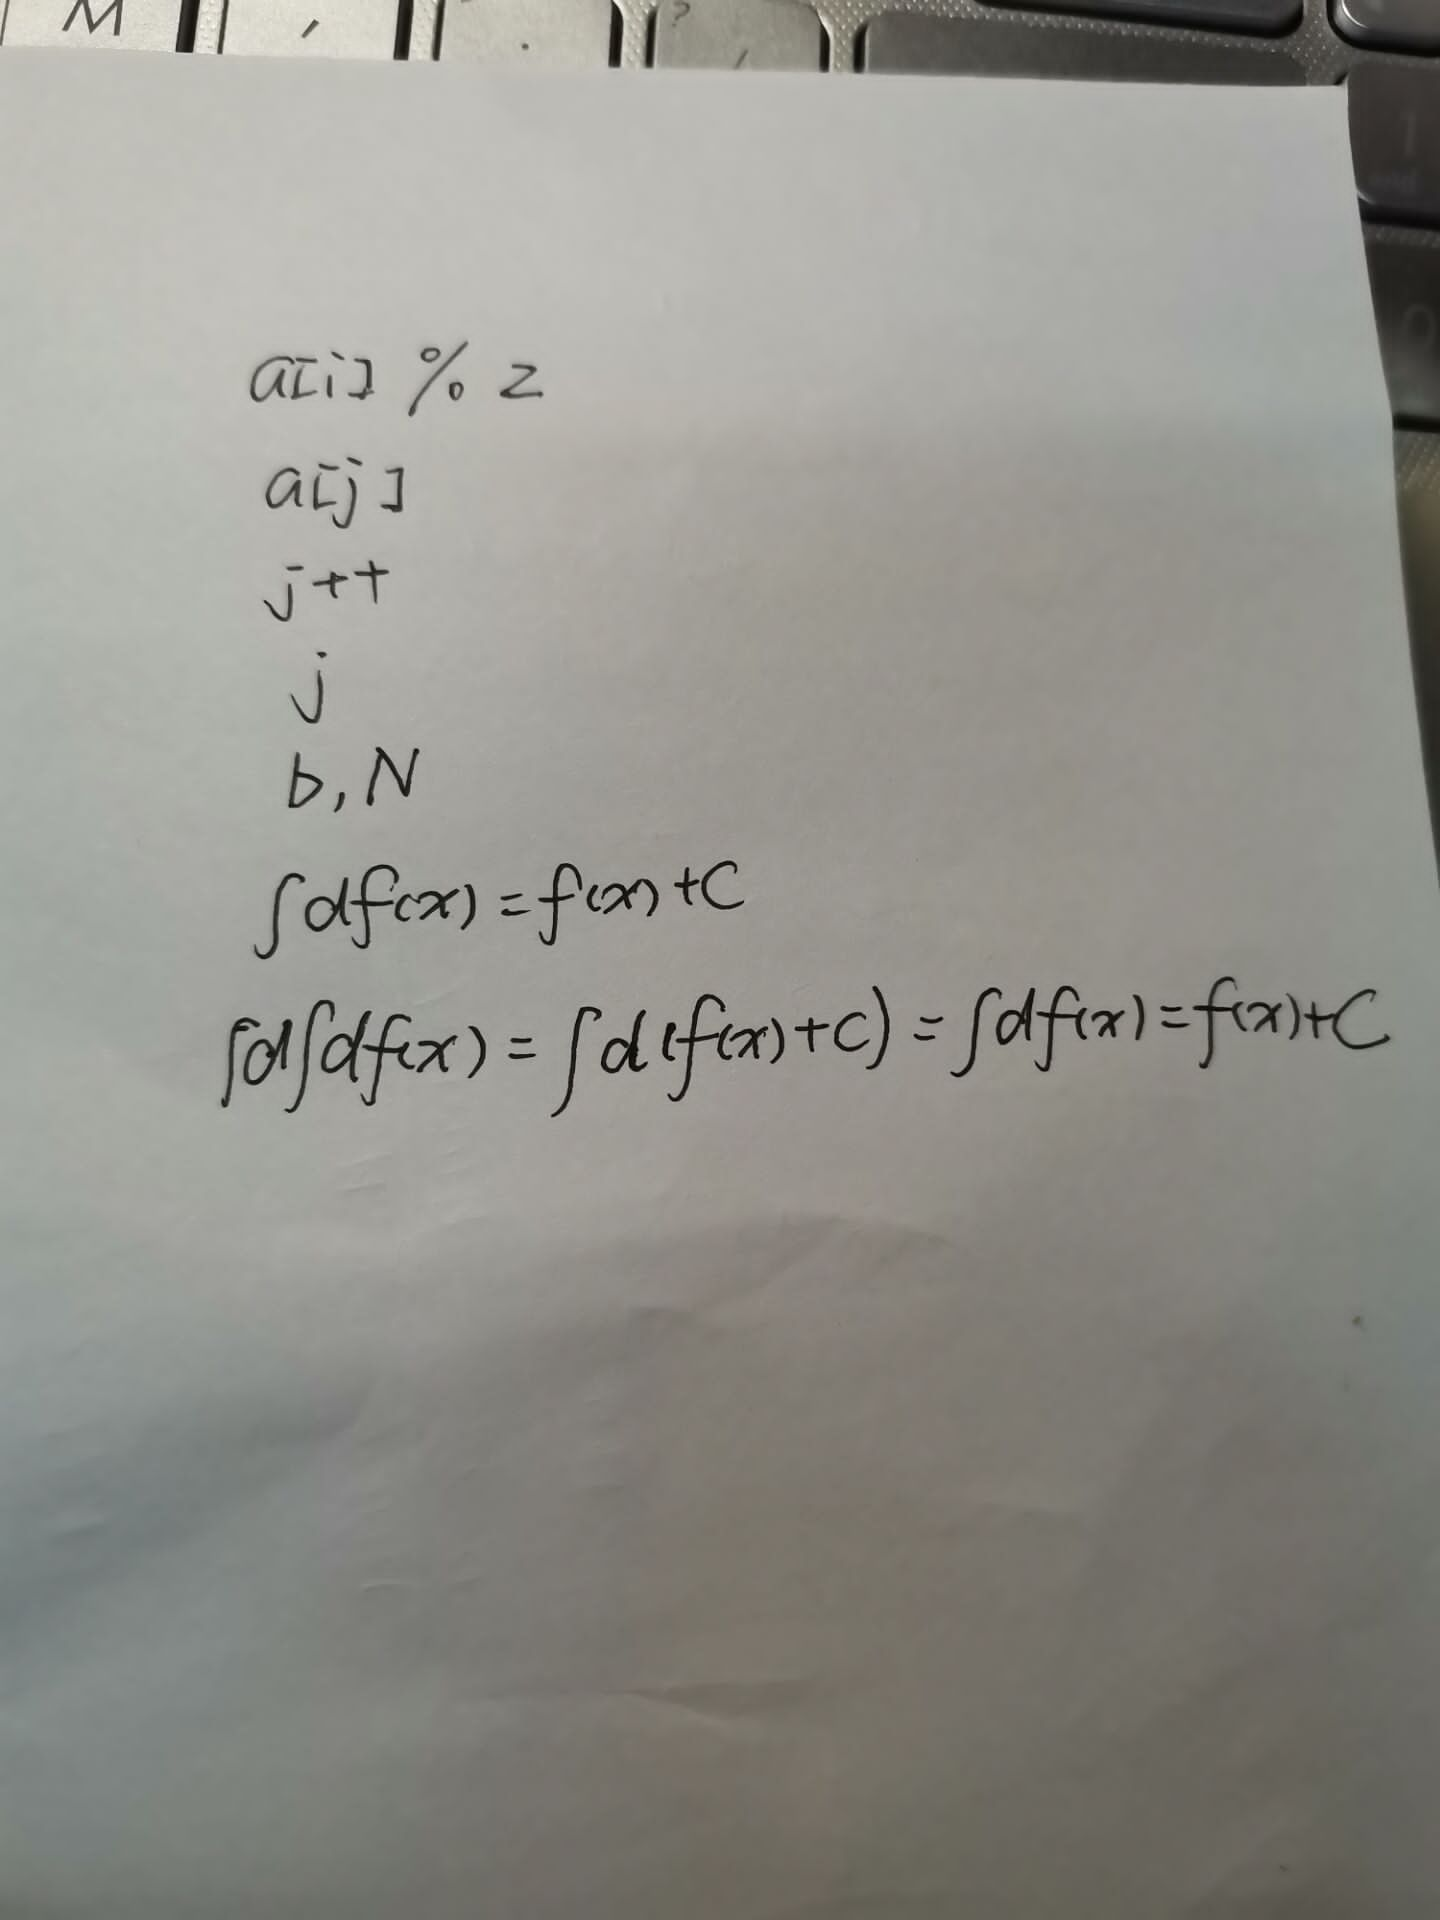 M , . ? /
a[i] % 2
a[j]
j++
j
b, N
∫df(x) = f(x) + C
∫d∫df(x) = ∫d(f(x)+C) = ∫df(x) = f(x)+C